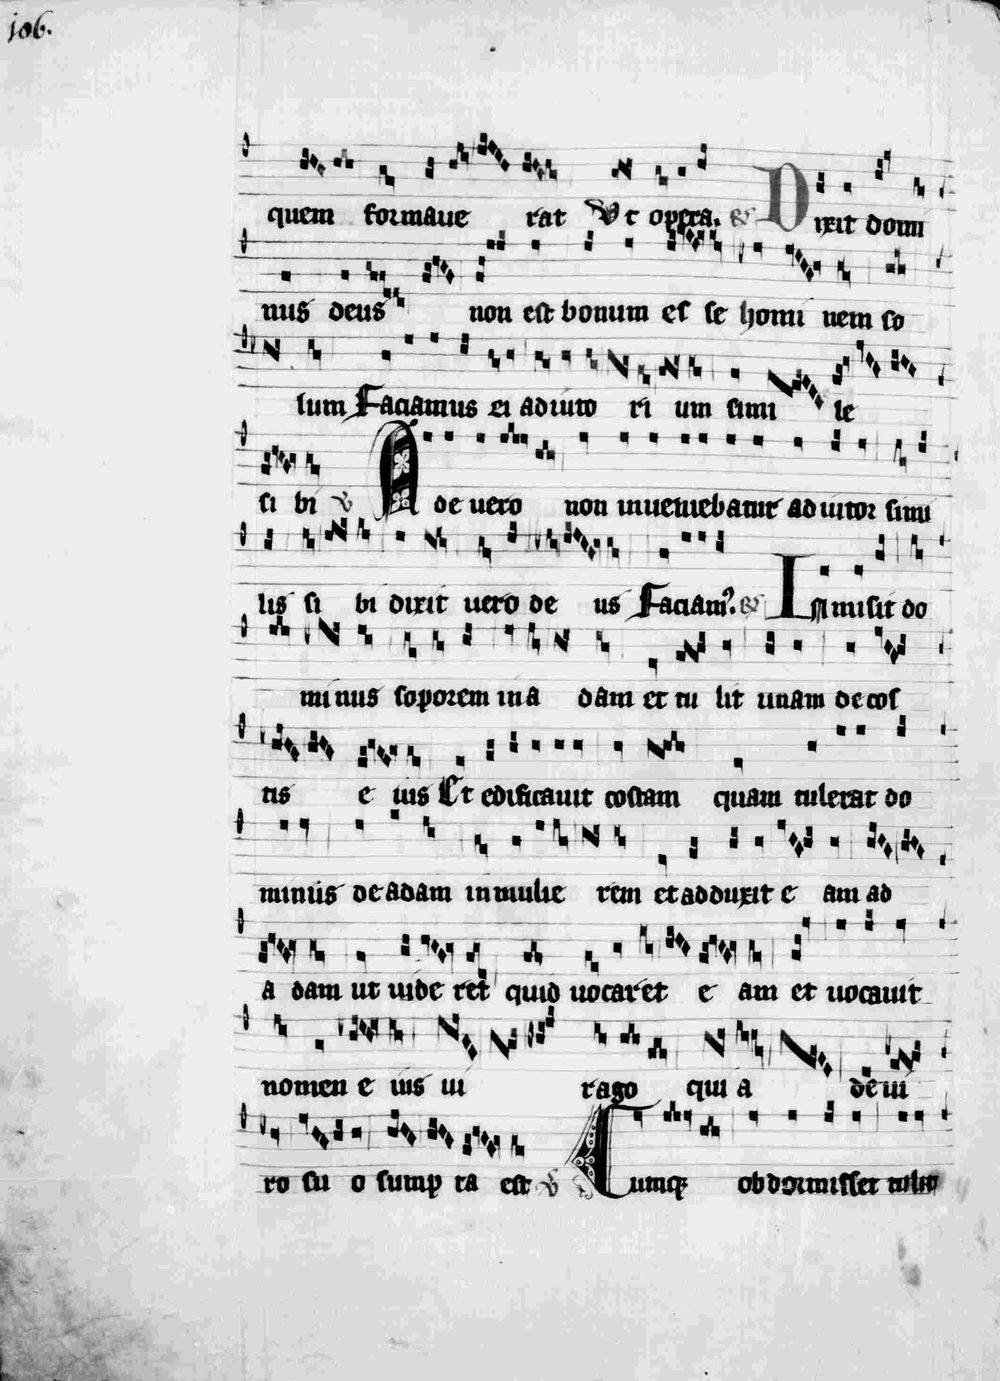 106.
quem formaue rat Vt opera. Dixit domi
nus deus non est bonum es se homi nem so
lum Faciamus ei adiuto ri um simi le
si bi Ade uero non inueniebatur adiutor simi
lis si bi dixit uero de us Faciam9. Inmisit do
minus soporem in a dam et tu lit unam de cos
tis e ius Et edificauit costam quam tulerat do
minus de adam in mulie rem et adduxit e am ad
a dam ut uide ret quid uocaret e am et uocauit
nomen e ius ui rago qui a de ui
ro su o sump ta est Cumq obdormisset tulit